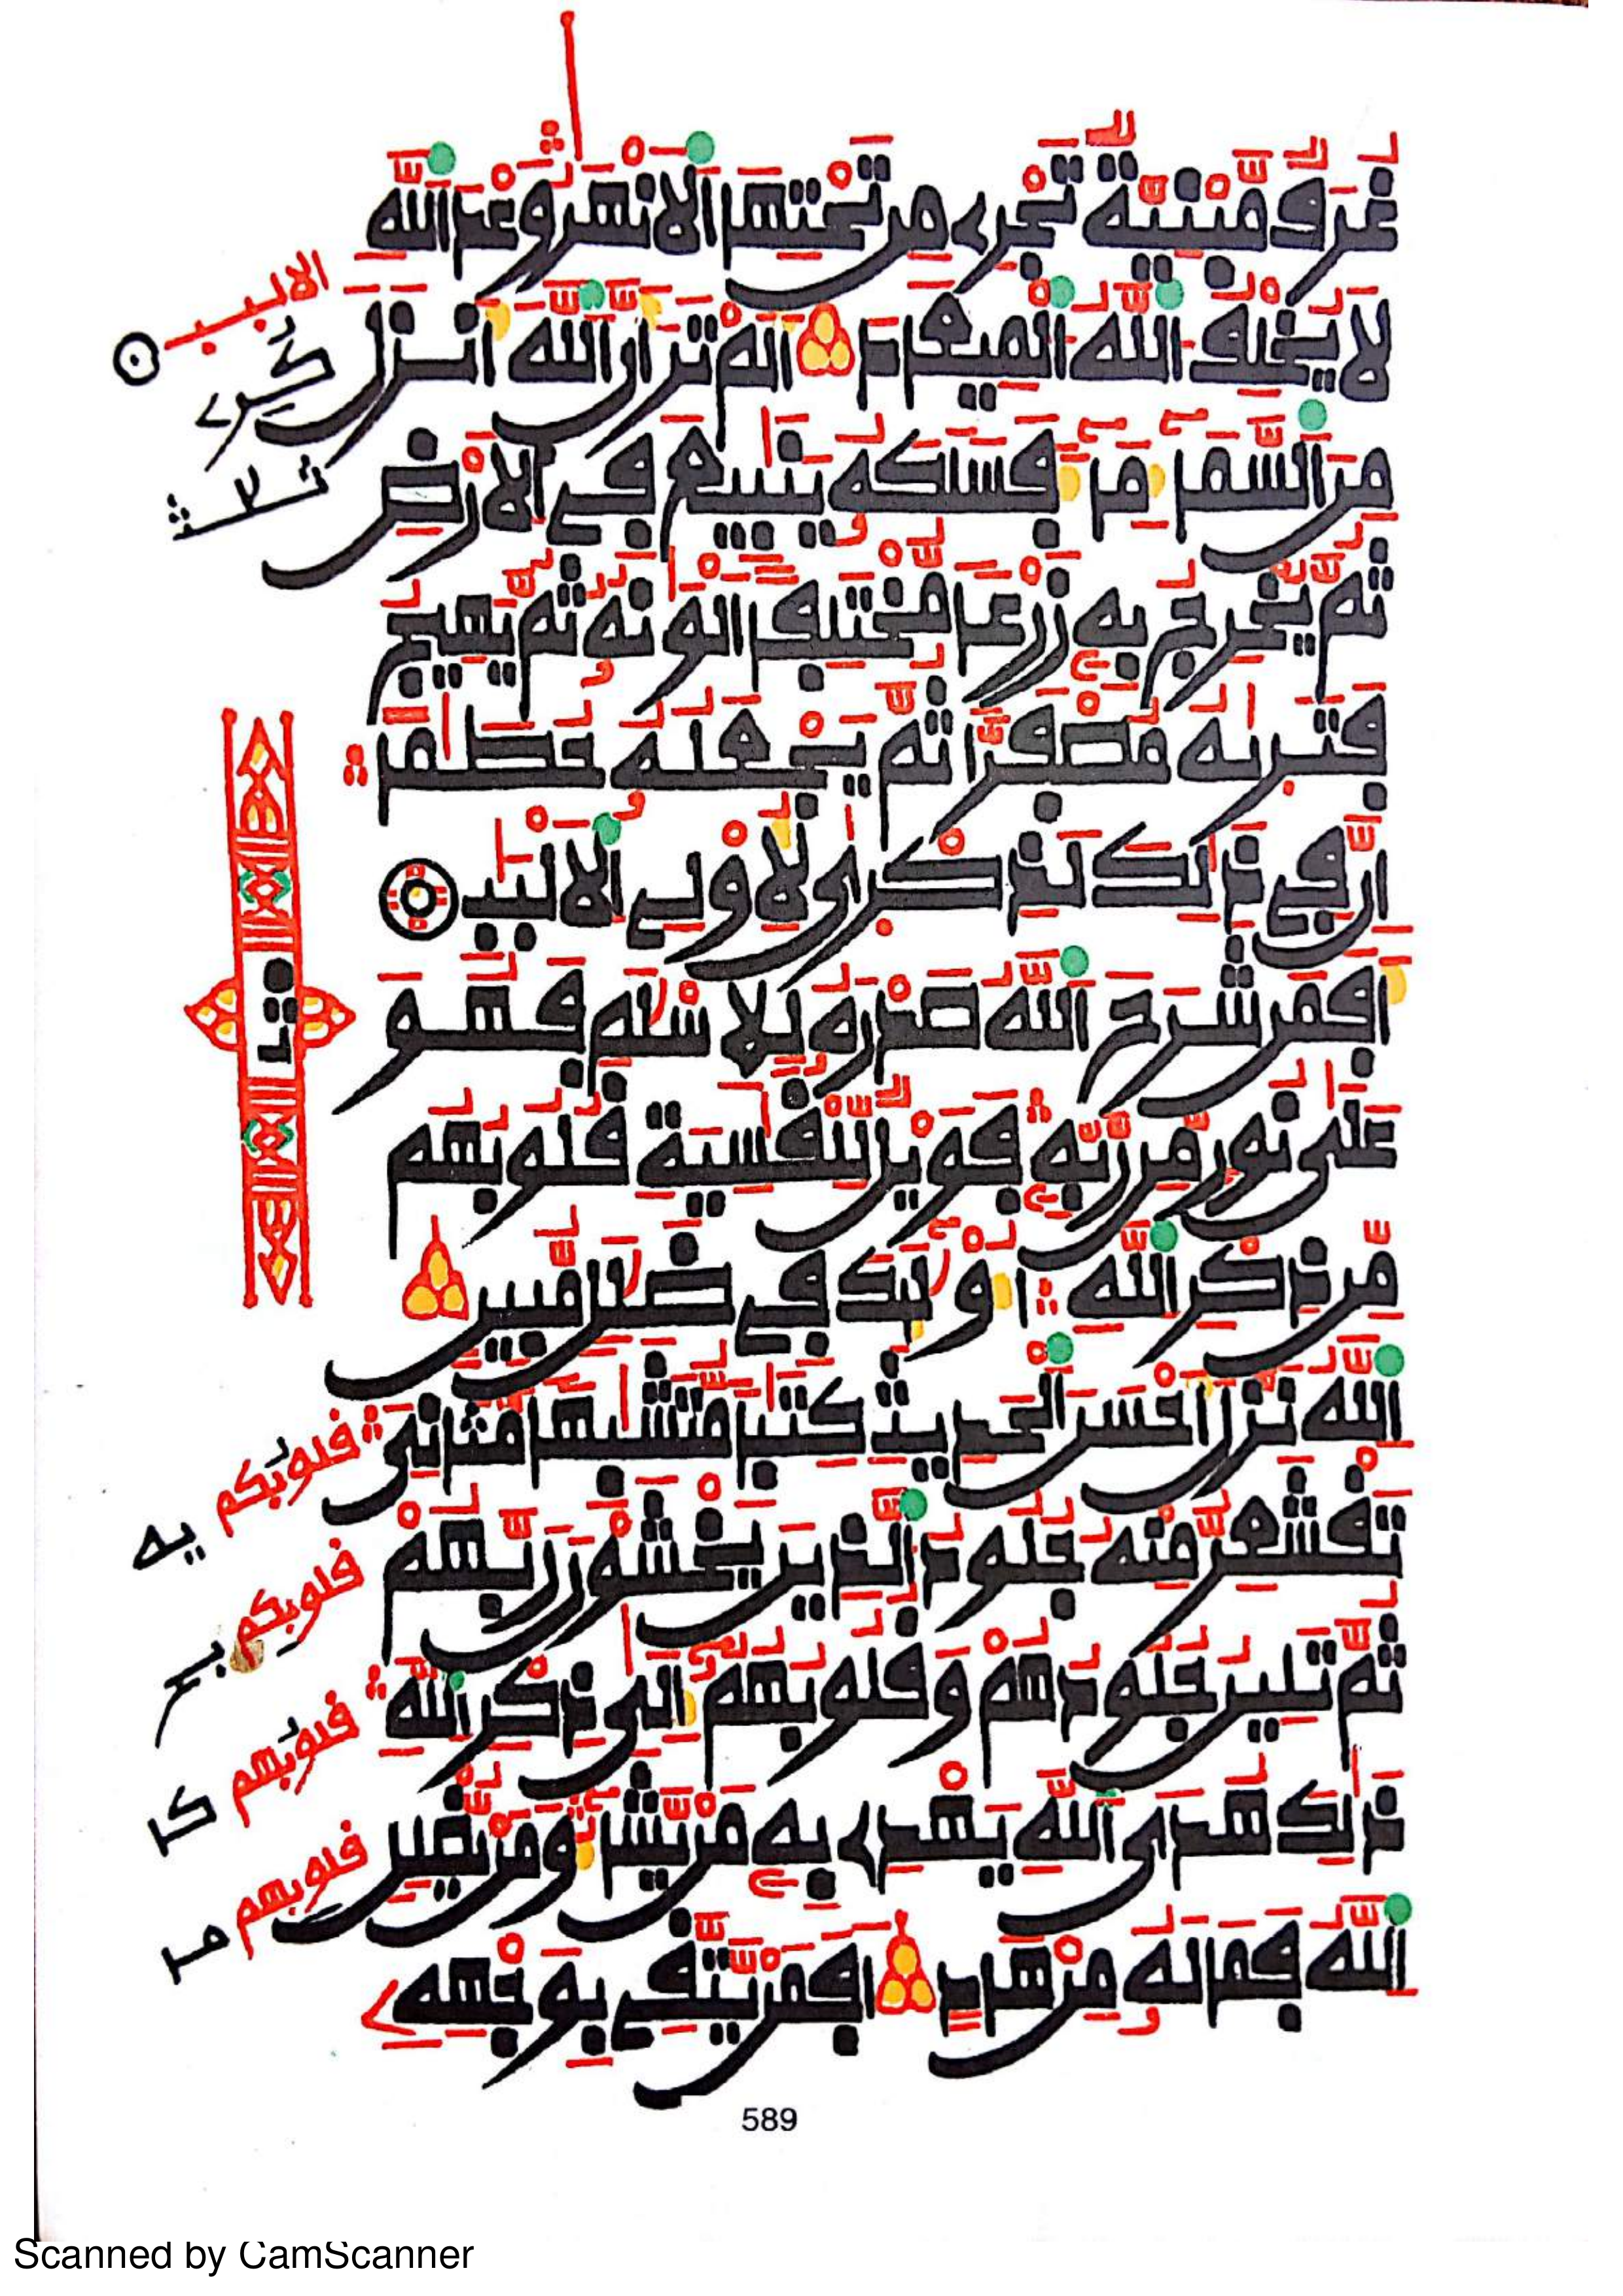 غُرَفٌ مَّبْنِيَّةٌ تَجْرِے مِن تَحْتِهَا اَ۬لَانْهَٰرُ وَعْدَ اَ۬للَّهِ
لَا يُخْلِفُ اُ۬للَّهُ اُ۬لْمِيعَادَ أَلَمْ تَرَ أَنَّ اَ۬للَّهَ أَنزَلَ
مِنَ اَ۬لسَّمَآءِ مَآءٗ فَسَلَكَهُۥ يَنَٰبِيعَ فِے اِ۬لَارْضِ
ثُمَّ يُخْرِجُ بِهِۦ زَرْعاٗ مُّخْتَلِفاً اَلْوَٰنُهُۥ ثُمَّ يَهِيجُ
فَتَر۪ىٰهُ مُصْفَرّاٗ ثُمَّ يَجْعَلُهُۥ حُطَٰماً
اِنَّ فِے ذَٰلِكَ لَذِكْر۪ىٰ لُأوْلِے اِ۬لَالْبَٰبِ
أَفَمَن شَرَحَ اَ۬للَّهُ صَدْرَهُۥ لِلِاسْلَٰمِ فَهُوَ
عَلَىٰ نُورٖ مِّن رَّبِّهِۦ فَوَيْلٞ لِّلْقَٰسِيَةِ قُلُوبُهُم
مِّن ذِكْرِ اِ۬للَّهِ أُوْلَٰٓئِكَ فِے ضَلَٰلٖ مُّبِينٍ
اِ۬للَّهُ نَزَّلَ أَحْسَنَ اَ۬لْحَدِيثِ كِتَٰباٗ مُّتَشَٰبِهاٗ مَّثَانِيَ
تَقْشَعِرُّ مِنْهُ جُلُودُ اُ۬لذِينَ يَخْشَوْنَ رَبَّهُمْ
ثُمَّ تَلِينُ جُلُودُهُمْ وَقُلُوبُهُمُۥٓ إِلَىٰ ذِكْرِ اِ۬للَّهِ
ذَٰلِكَ هُدَى اَ۬للَّهِ يَهْدِے بِهِۦ مَنْ يَّشَآءُ وَمَنْ يُّضْلِلِ
اِ۬للَّهُ فَمَا لَهُۥ مِنْ هَادٍ اَفَمَنْ يَّتَّقِے بِوَجْهِهِۦ
الالبب
كرے
ثلث
قلوبكم يه
قلوبكم بر
قلوبهم كر
قلوبهم مر
589
Scanned by CamScanner